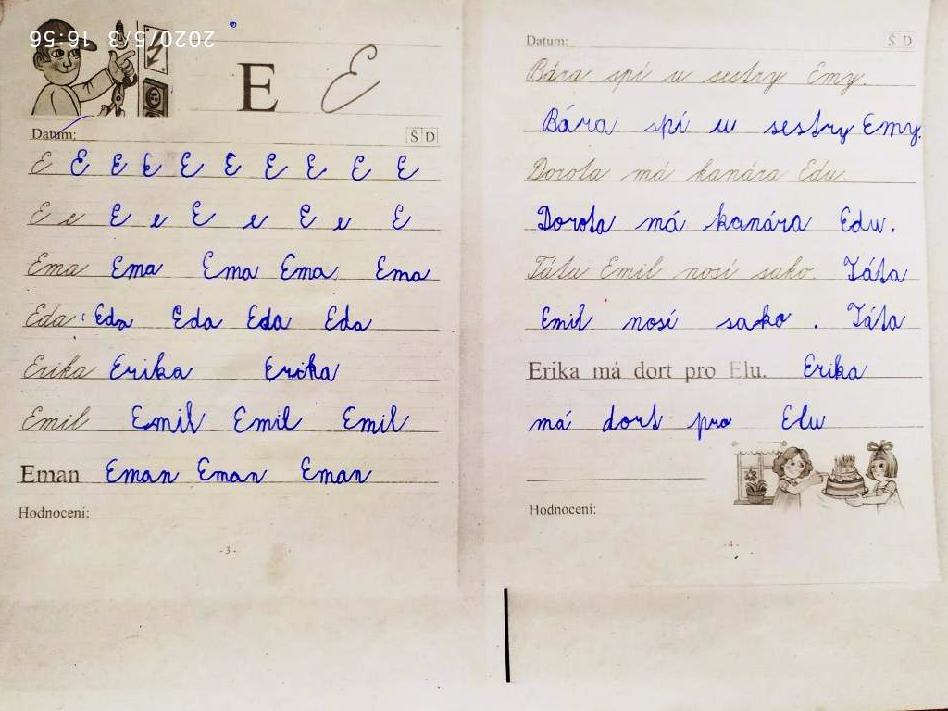 2020/5/3 16:56
E E
Datum: Š D
E E E E E E E E E E
E e E e E e E e E
Ema Ema Ema Ema Ema
Eda Eda Eda Eda Eda
Erika Erika Erika
Emil Emil Emil Emil
Eman Eman Eman Eman
Hodnocení:
-3-
Datum: Š D
Bára spí u sestry Emy.
Bára spí u sestry Emy.
Dorota má kanára Edu.
Dorota má kanára Edu.
Táta Emil nosí sako. Táta
Emil nosí sako. Táta
Erika má dort pro Elu. Erika
má dort pro Elu
Hodnocení:
-4-